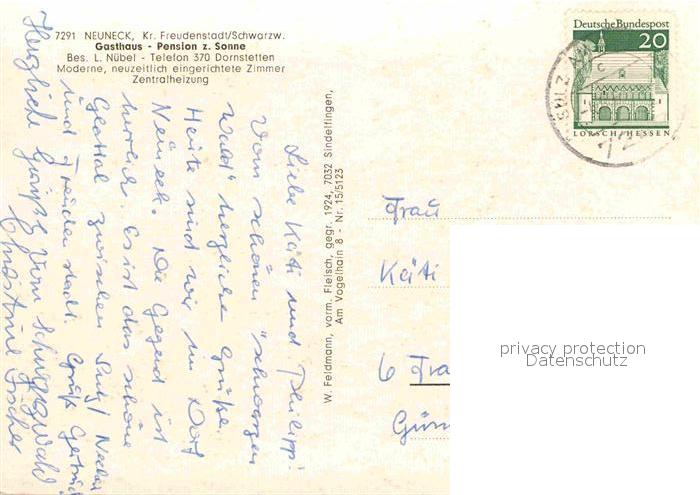 7291 NEUNECK, Kr. Freudenstadt/Schwarzw.
Gasthaus - Pension z. Sonne
Bes. L. Nübel - Telefon 370 Dornstetten
Moderne, neuzeitlich eingerichtete Zimmer
Zentralheizung
Liebe Käti und Philipp!
Vom schönen "schwarzen
Wald" herzliche Grüße.
Heute sind wir im Dorf
Neuneck. Die Gegend ist
herrlich. Es ist das schöne
Glattal zwischen Sulz/Neckar
und Freudenstadt. Grüße Gertrud
Herzliche Grüße vom Schwarzwald
Christine Fischer
W. Feldmann, vorm. Fleisch, gegr. 1924, 7032 Sindelfingen,
Am Vogelhain 8 - Nr. 15/5123
Deutsche Bundespost
20
LORSCH/HESSEN
SULZ
Frau
Käti
6 Fra
Gün
privacy protection
Datenschutz